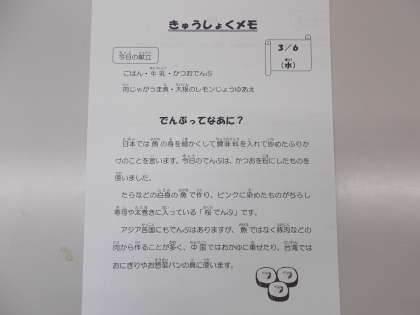 きゅうしょくメモ
3/6
(水)
今日の献立
ごはん・牛乳・かつおでんぶ
肉じゃがうま煮・大根のレモンじょうゆあえ
でんぶってなあに?
日本では魚の身を細かくして調味料を入れて炒めたふりか
けのことを言います。今日のでんぶは、かつおを粉にしたものを
使いました。
たらなどの白身の魚で作り、ピンクに染めたものがちらし
寿司や太巻きに入っている「桜でんぶ」です。
アジア各国にもでんぶはありますが、魚ではなく豚肉などの
肉から作ることが多く、中国ではおかゆに乗せたり、台湾では
おにぎりやお惣菜パンの具に使います。